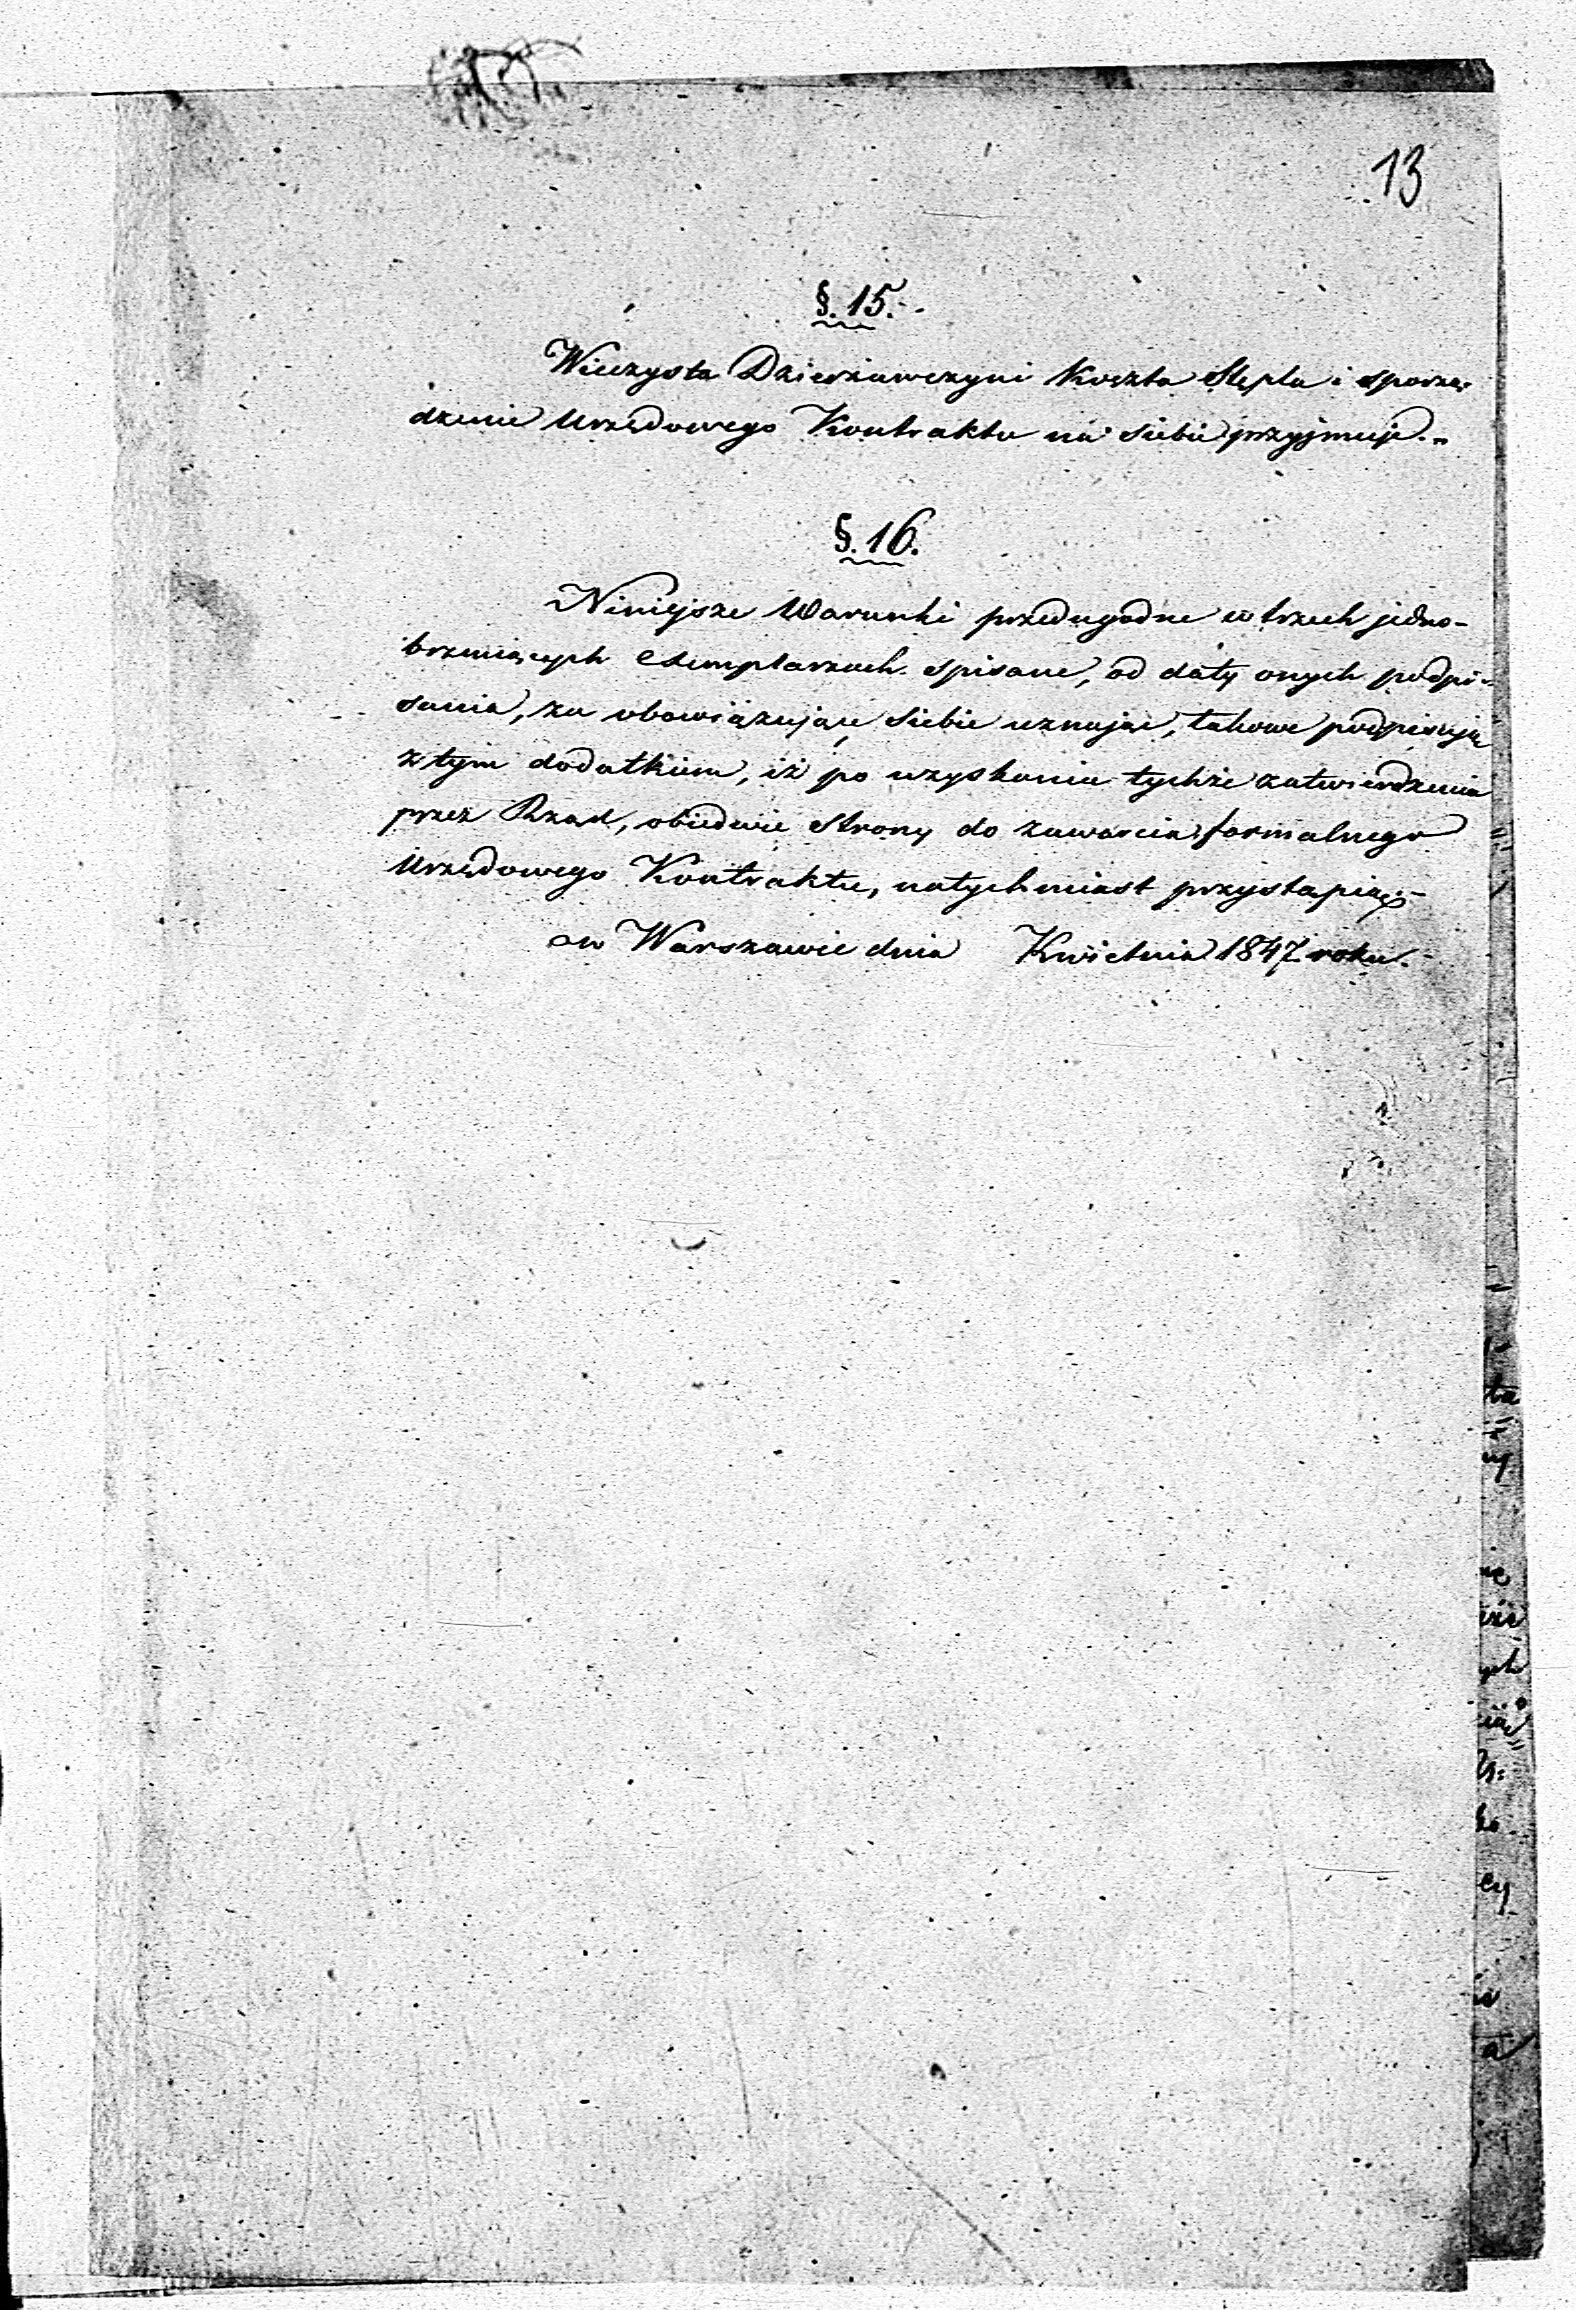 13
§. 15.
Wieczysta Dzierżawczyni Koszta Stępla i sporzą-
dzenie Urzędowego Kontraktu na siebie przyjmuje.
§. 16.
Niniejsze Warunki przedugodne w trzech jedno-
brzmiących exemplarzach spisane, od daty onych podpi-
sania, za obowiązujące siebie uznając, takowe podpisują
z tym dodatkiem, iż po uzyskaniu tychże zatwierdzenia
przez Rząd, obiedwie strony do zawarcia formalnego
Urzędowego Kontraktu, natychmiast przystąpią.
w Warszawie dnia Kwietnia 1847 roku.